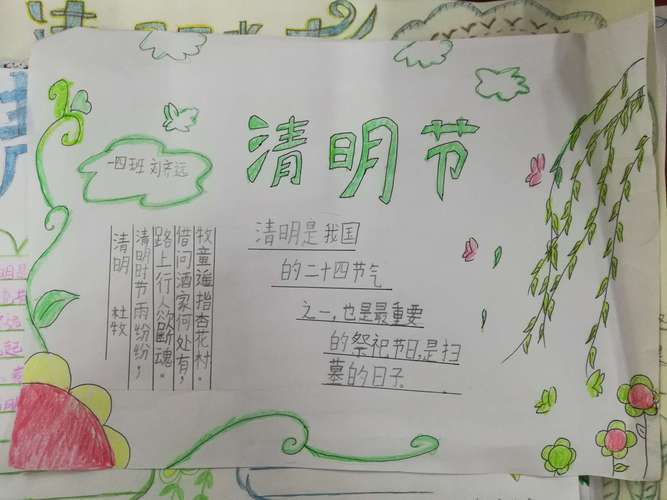 清明节
一四班
清明 杜牧
清明时节雨纷纷，
路上行人欲断魂。
借问酒家何处有，
牧童遥指杏花村。
清明是我国
的二十四节气
之一，也是最重要
的祭祀节日，是扫
墓的日子。